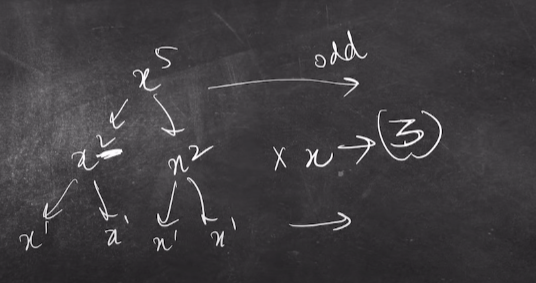 x⁵ → odd
x² x² × x → (3)
x¹ x¹ x¹ x¹ →